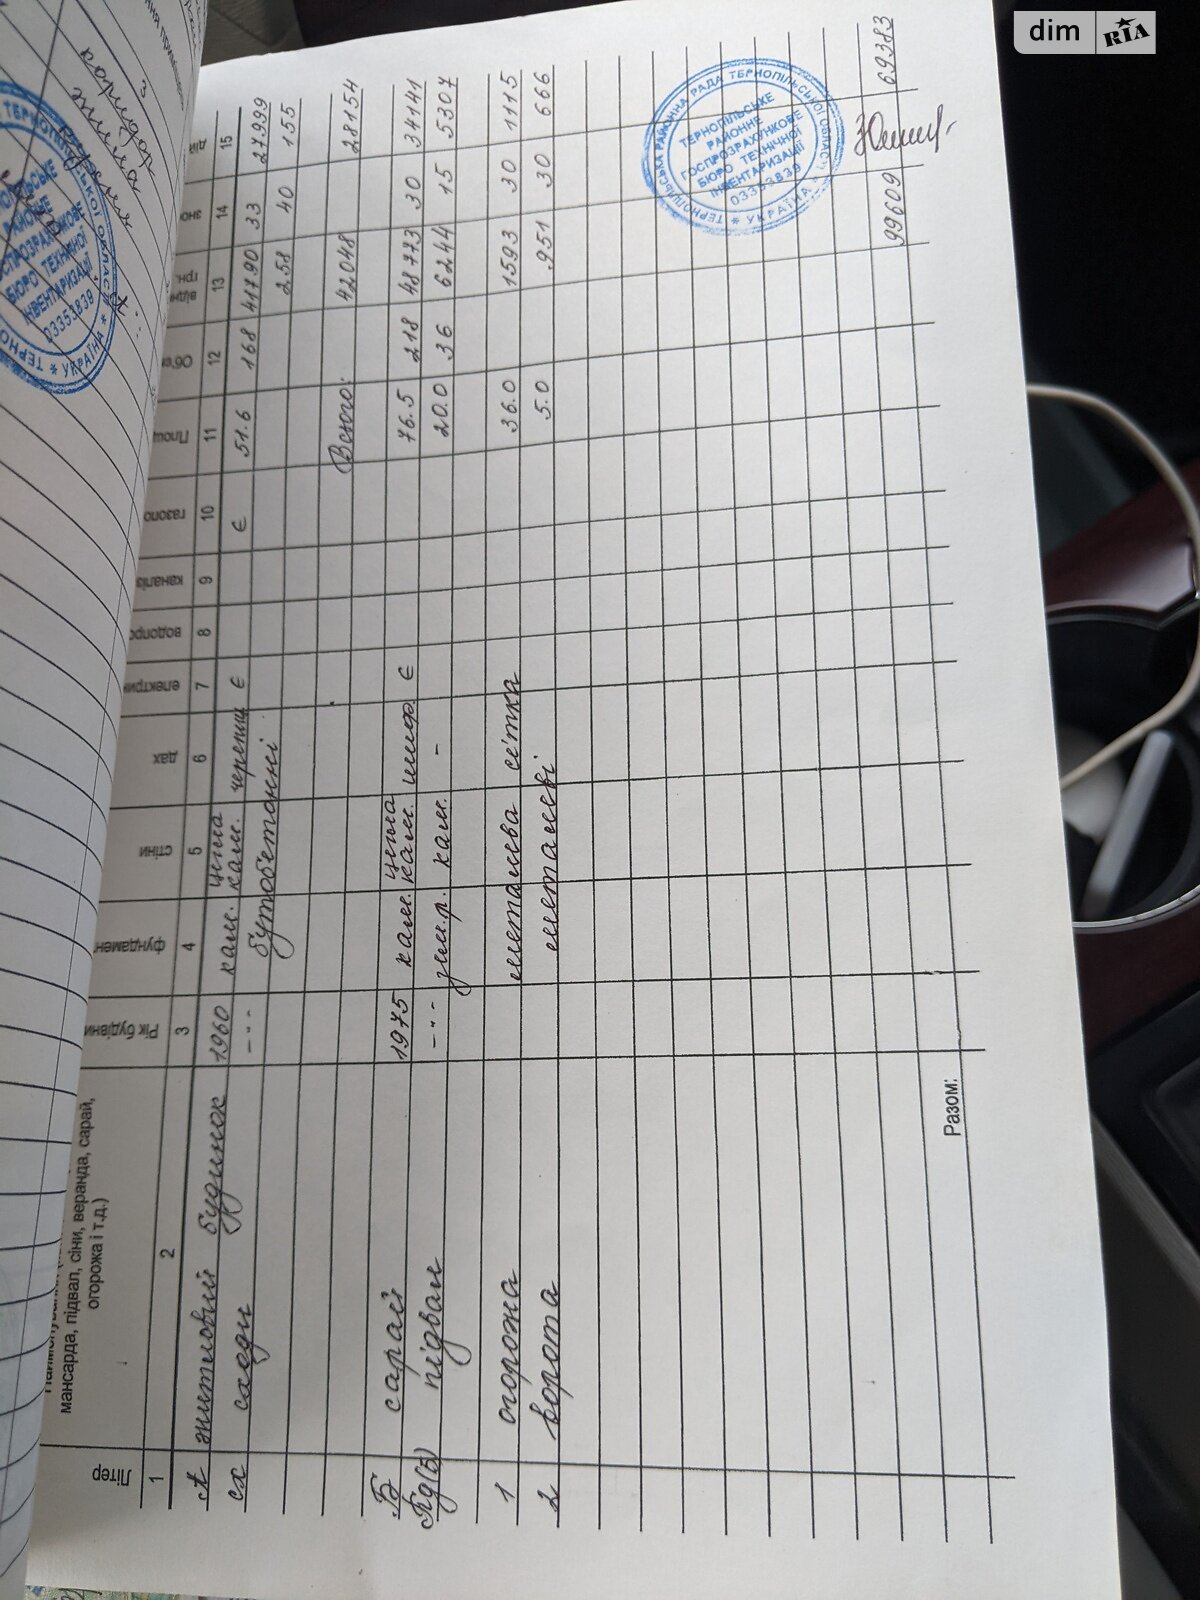 dim RIA
Літер
мансарда, підвал, сіни, веранда, сарай,
огорожа і т.д.)
Рік будівни
фундамен
стіни
дах
електрик
водопро
каналіз
газопо
Площ
Об'єм
відно
грн.
зно
дій
1 2 3 4 5 6 7 8 9 10 11 12 13 14 15
А житловий будинок 1960 кам. цегла кам. черепиц є є 51.6 168 41790 33 27999
сх сходи -"- бутобетонні 258 40 155
Всього: 42048 28154
Б сарай 1975 кам. цегла кам. шифр є 76.5 218 48773 30 34141
Пд(Б) підвал -"- зм.р. кам. - 20.0 36 6244 15 5307
1 огорожа металева сітка 36.0 1593 30 1115
2 ворота металеві 5.0 951 30 666
Разом: 99609 69383
ТЕРНОПІЛЬСЬКА РАЙОННА РАДА ТЕРНОПІЛЬСЬКОЇ ОБЛАСТІ
* УКРАЇНА *
ТЕРНОПІЛЬСЬКЕ
РАЙОННЕ
ГОСПРОЗРАХУНКОВЕ
БЮРО ТЕХНІЧНОЇ
ІНВЕНТАРИЗАЦІЇ
03353839
3
коридор
кухня
РАЙОННЕ
ГОСПРОЗРАХУНКОВЕ
БЮРО ТЕХНІЧНОЇ
ІНВЕНТАРИЗАЦІЇ
03353839
* УКРАЇНА *